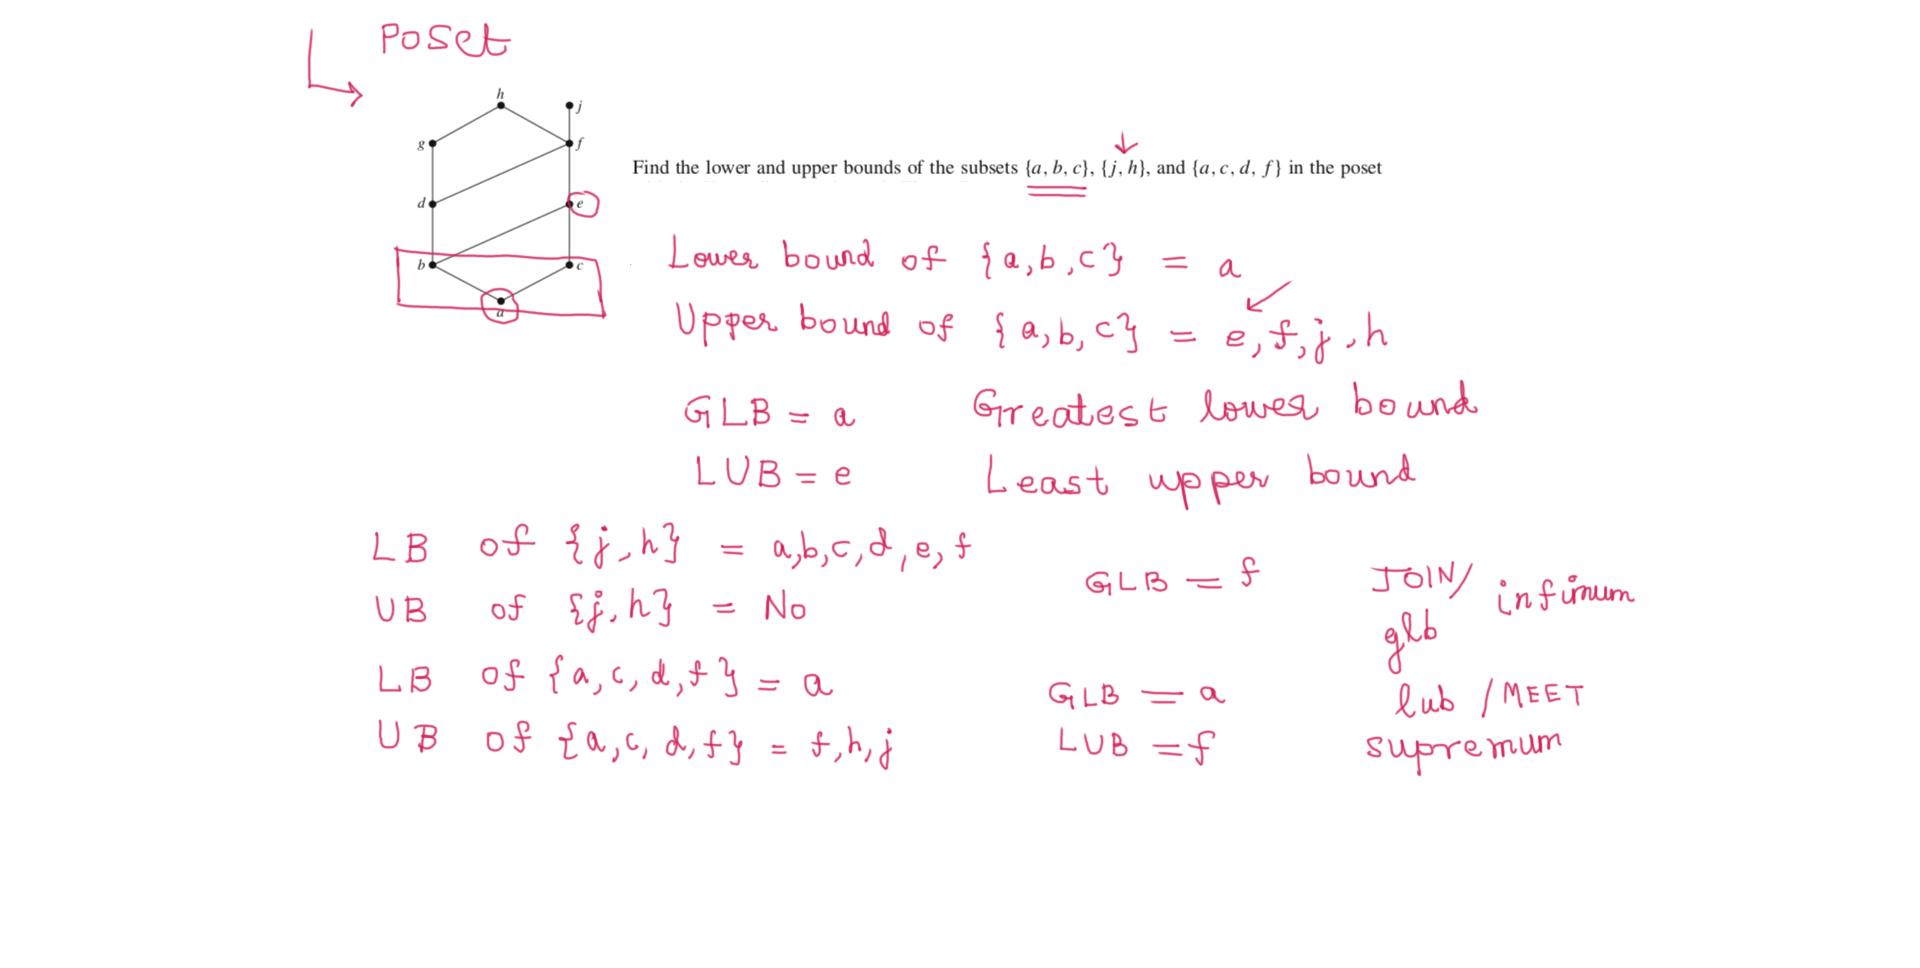 Poset
h
j
g
f
Find the lower and upper bounds of the subsets {a, b, c}, {j, h}, and {a, c, d, f} in the poset
d
e
b
c
a
Lower bound of {a,b,c} = a
Upper bound of {a,b,c} = e,f,j,h
GLB = a Greatest lower bound
LUB = e Least upper bound
LB of {j,h} = a,b,c,d,e,f
GLB = f JOIN/ infimum
UB of {j,h} = No
glb
LB of {a,c,d,f} = a
GLB = a lub /MEET
UB of {a,c,d,f} = f,h,j
LUB = f supremum